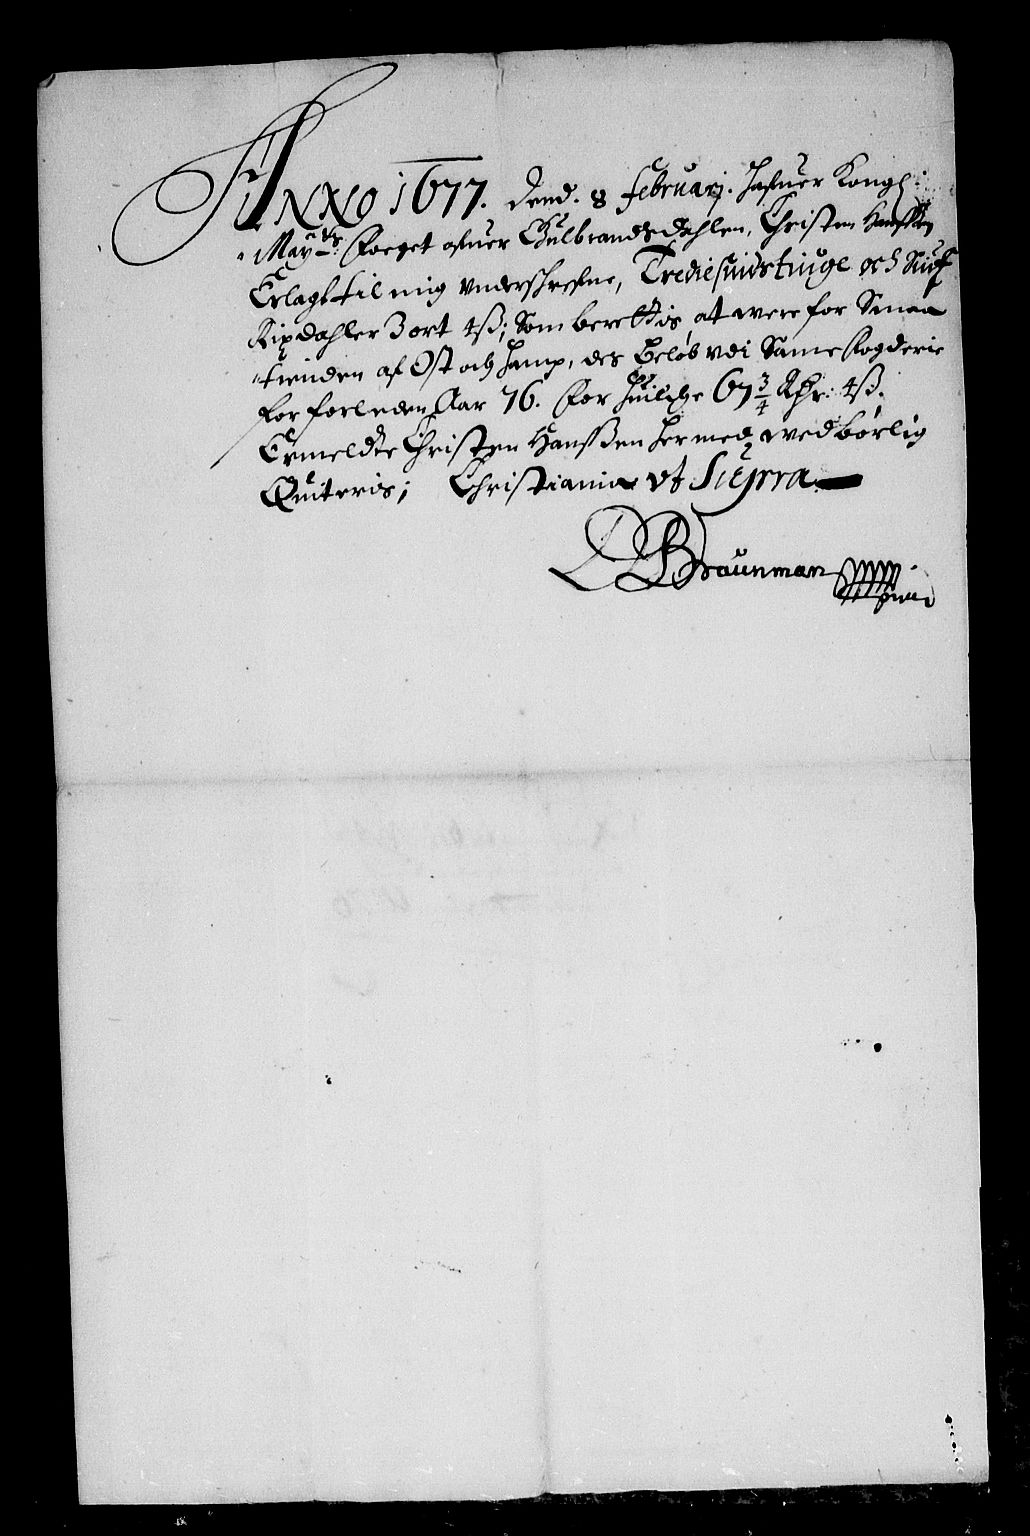 Anno 1677. Dend. 8 Februarj. Hafuer Kongl:
Maytz: Foeget ofuer Gulbrandsdahlen, Christen Hanssen
Erlagt til mig vnderschrefne, Trediesindstiuge och Siuf
Rixdahler 3 ort 4ß; Som berettis, at were for Smaa
tienden af Ost och Hamp, des Beløb vdi Samme Fogderie
for forleden Aar 76. For huilche 67 3/4 Rdr: 4ß.
Ermeldte Christen Hanssen hermed, wedbørlig
Quiteris; Christiania vt Supra
Braunman